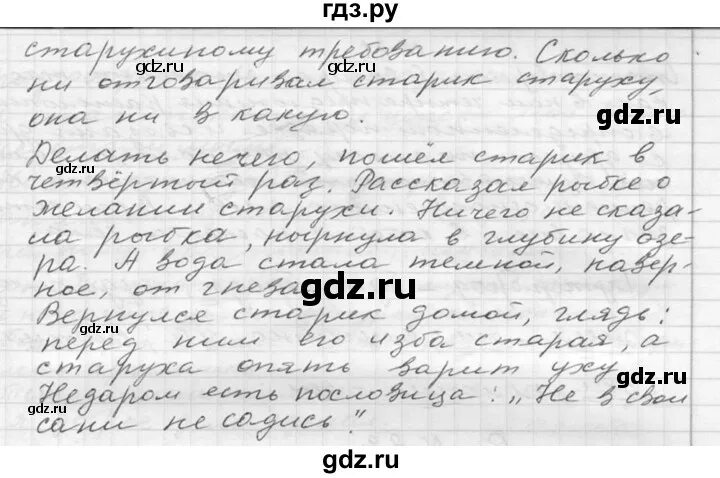 гдз.ру
старухиному требованию. Сколько
ни отговаривал старик старуху,
она ни в какую.
Делать нечего, пошёл старик в
четвёртый раз. Рассказал рыбке о
желании старухи. Ничего не сказа-
ла рыбка, нырнула в глубину озе-
ра. А вода стала темной, навер-
ное, от гнева.
Вернулся старик домой, глядь:
перед ним его изба старая, а
старуха опять варит уху.
Недаром есть пословица: „Не в свои
сани не садись".
gdz.ru
gdz.ru
gdz.ru
gdz.ru
gdz.ru
gdz.ru
gdz.ru
gdz.ru
gdz.ru
гдз.ру